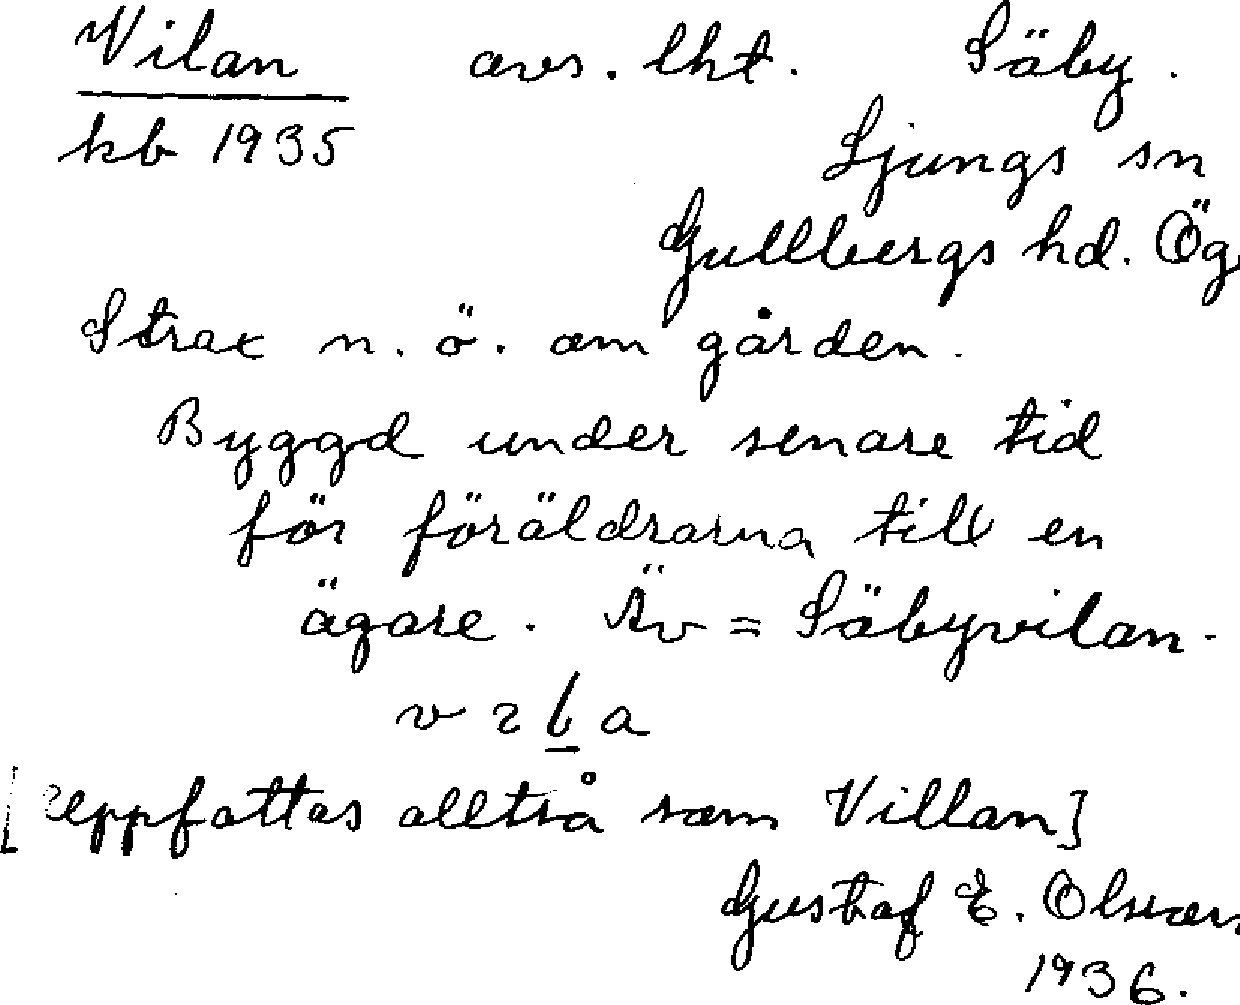 Vilan avs. lht. Säby.
kb 1935 Ljungs sn
Gullbergs hd. Ög.
Strax n. ö. om gården.
Byggd under senare tid
för föräldrarna till en
ägare. Äv = Säbyvilan.
v 2 b a
[uppfattas alltså som Villan]
Gustaf E. Olsson
1936.